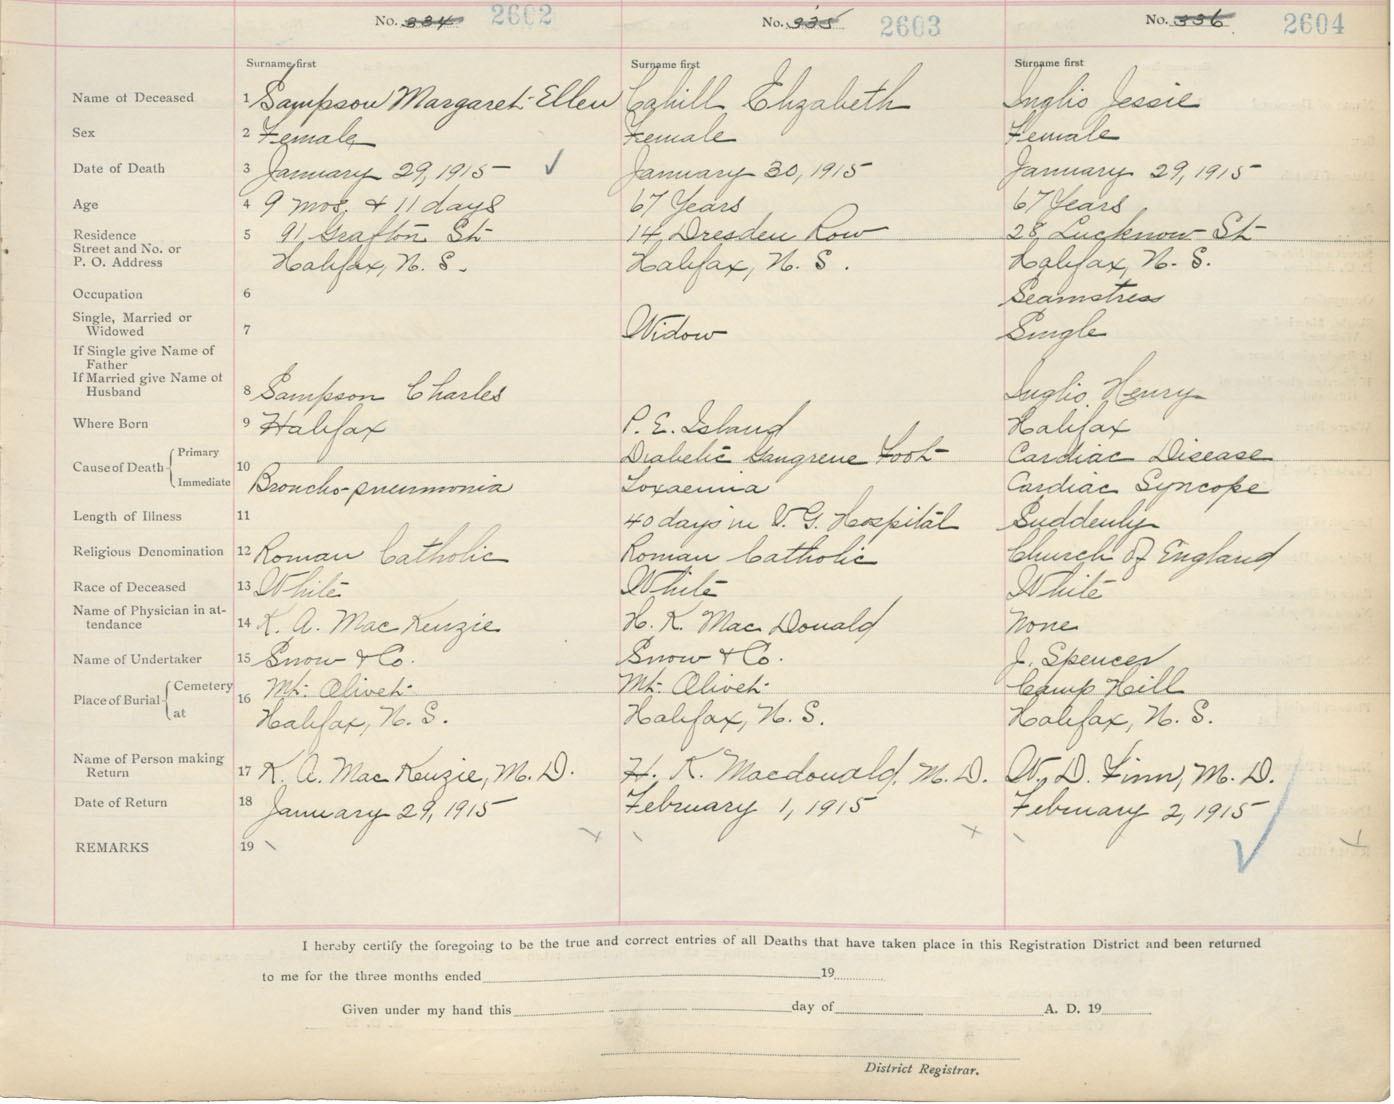 No. 334 2602 No. 335 2603 No. 336 2604
Surname first Surname first Surname first
Name of Deceased 1 Sampson Margaret Ellen Cahill Elizabeth Inglis Jessie
Sex 2 Female Female Female
Date of Death 3 January 29, 1915 ✓ January 30, 1915 January 29, 1915
Age 4 9 mos. & 11 days 67 Years 67 Years
Residence 5 91 Grafton St 14 Dresden Row 28 Lucknow St
Street and No. or
P. O. Address Halifax, N. S. Halifax, N. S. Halifax, N. S.
Occupation 6 Seamstress
Single, Married or
Widowed 7 Widow Single
If Single give Name of
Father
If Married give Name of
Husband 8 Sampson Charles Inglis Henry
Where Born 9 Halifax P. E. Island Halifax
Cause of Death Primary 10 Diabetic Gangrene Foot Cardiac Disease
Immediate Broncho-pneumonia Toxaemia Cardiac Syncope
Length of Illness 11 40 days in V. G. Hospital Suddenly
Religious Denomination 12 Roman Catholic Roman Catholic Church of England
Race of Deceased 13 White White White
Name of Physician in at-
tendance 14 K. A. MacKenzie H. K. MacDonald None
Name of Undertaker 15 Snow & Co. Snow & Co. J. Spencer
Place of Burial Cemetery 16 Mt. Olivet Mt. Olivet Camp Hill
at Halifax, N. S. Halifax, N. S. Halifax, N. S.
Name of Person making
Return 17 K. A. MacKenzie, M. D. H. K. Macdonald, M. D. W. D. Finn, M. D.
Date of Return 18 January 29, 1915 February 1, 1915 February 2, 1915
REMARKS 19
I hereby certify the foregoing to be the true and correct entries of all Deaths that have taken place in this Registration District and been returned
to me for the three months ended 19
Given under my hand this day of A. D. 19
District Registrar.